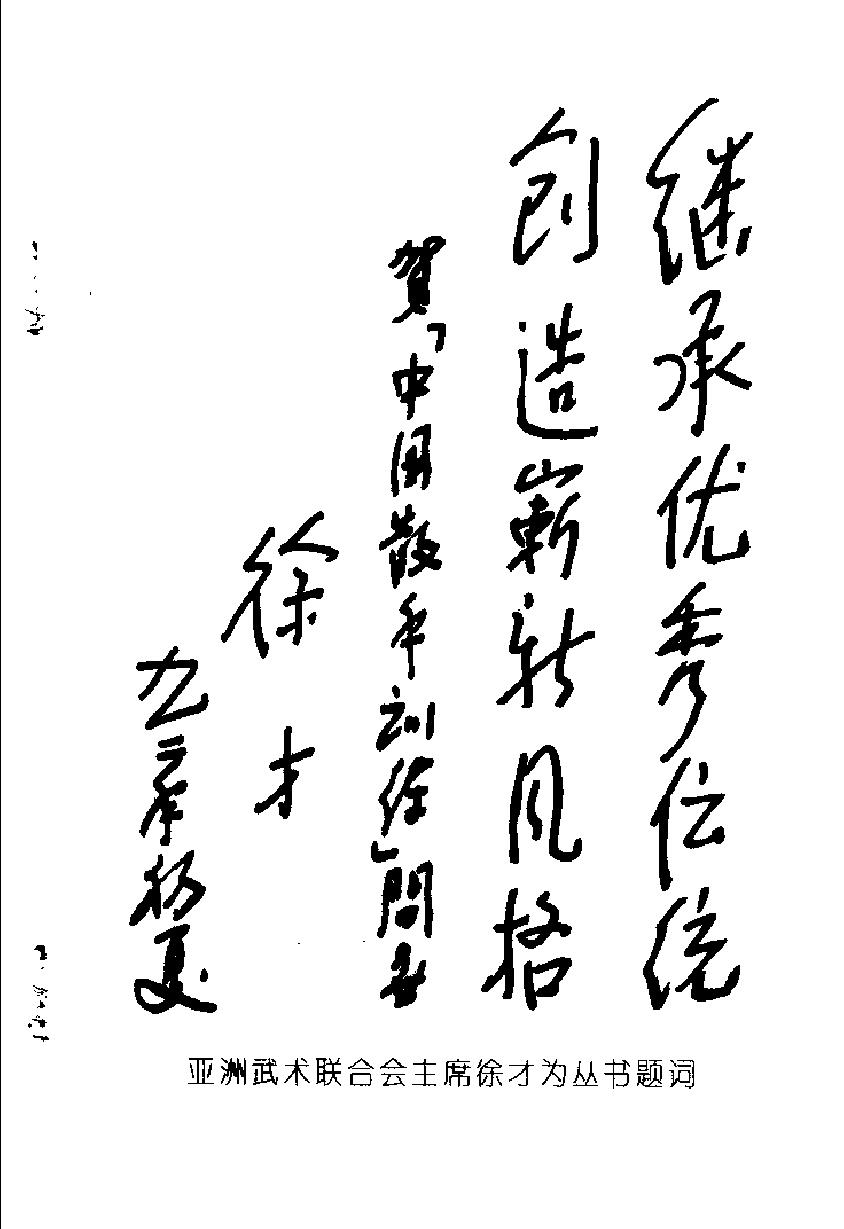 继承优秀传统
创造崭新风格
贺「中国散手训练」问世
徐才
九二年初夏
亚洲武术联合会主席徐才为丛书题词